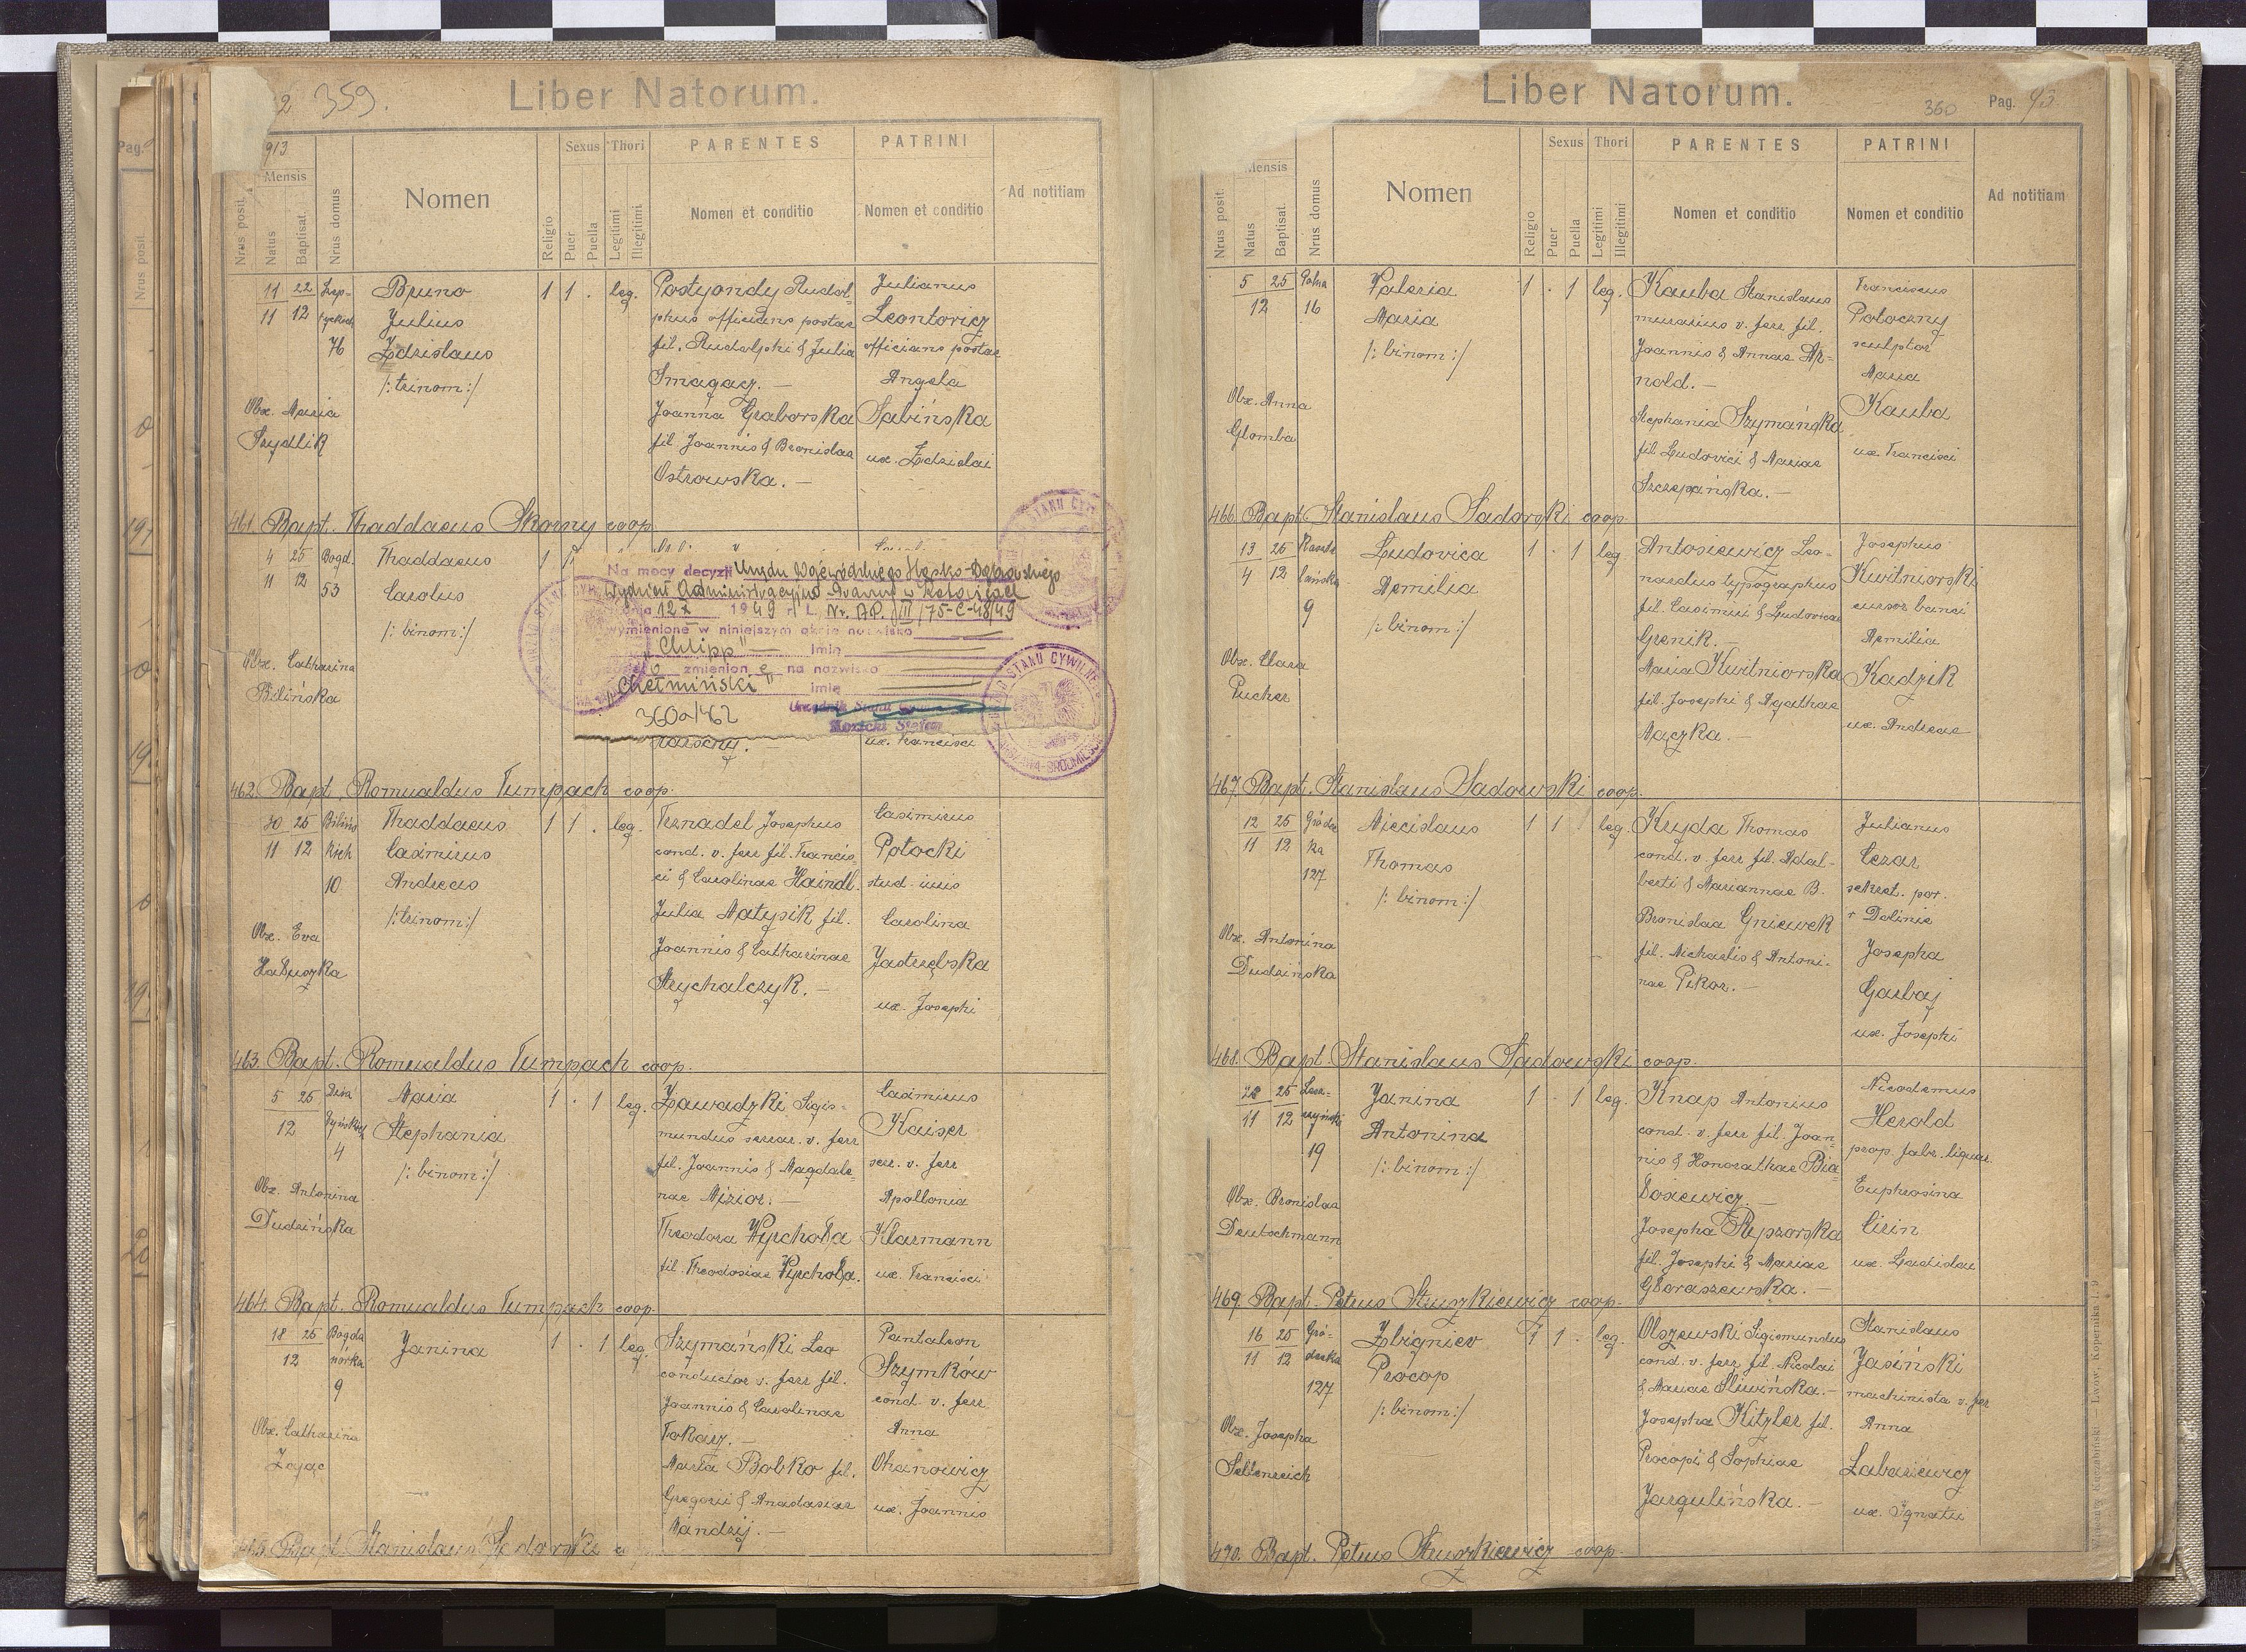 2 359.
Liber Natorum.
913
Mensis
Nrus posit.
Natus
Baptisat.
Nrus domus
Nomen
Religio
Sexus
Puer
Puella
Thori
Legitimi
Illegitimi
PARENTES
Nomen et conditio
PATRINI
Nomen et conditio
Ad notitiam
11 22 Bruno 1 1 . leg. Postyondy Rudol- Julianus
11 12 Julius phus officians postae Leontovicz
76 Zdzislaus fil. Rudolphi & Julia officians postae
/: trinom :/ Smagacz. — Angela
Obx. Maria Joanna Graborska Sabińska
Szydlik fil. Joannis & Bronislaa ux. Zdzislai
Ostrowska. —
461. Bapt. Thaddaeus Skorny coop.
4 25 Bogd. Thaddaeus 1
11 12 53 Carolus
/: binom :/
Obx. Catharina
Bilińska
Na mocy decyzji Urzędu Wojewódzkiego Śląsko-Dąbrowskiego
Wydział Administracyjno-Prawny w Katowicach
dnia 12 X 1949 r. L. Nr. AP. III/75-C-48/49
wymienione w niniejszym akcie nazwisko
"Chlipp" — imię
zmienione na nazwisko
"Chełmiński" imię
Urzędnik Stanu Cywilnego
360a/462
ux. Francisci
462. Bapt. Romualdus Tumpach coop.
30 25 Bilińs Thaddaeus 1 1 . leg. Ternadel Josephus Casimirus
11 12 kich Casimirus cond. v. ferr fil. Francis- Potocki
10 Andreas ci & Carolinae Haindl. stud. iuris
/: trinom :/ Julia Matysik fil. Carolina
Obx. Eva Joannis & Catharinae Jastrzębska
Habuszka Strychalczyk. — ux. Josephi
463. Bapt. Romualdus Tumpach coop.
5 25 Maria 1 . 1 leg. Zawadzki Sigis- Casimirus
12 Stephania mundus servus. v. ferr Kaiser
4 /: binom :/ fil. Joannis & Magdale- serv. v. ferr
Obx. Antonina nae Mizior. — Apollonia
Dudzińska Theodora Wychoła Klarmann
fil. Theodosiae Wychoła. ux. Francisci
464. Bapt. Romualdus Tumpach coop.
18 25 Bogda Janina 1 . 1 leg. Szymański Leo Pantaleon
12 nórka conductor v. ferr fil. Szymków
9 Joannis & Carolinae cond. v. ferr
Obx. Catharina Tokarz. — Anna
Zając Maria Bobko fil. Ohanowicz
Gregorii & Anastasiae ux. Joannis
Mandzij. —
465. Bapt. Stanislaus Sadowski
Liber Natorum.
360 Pag. 93
Mensis
Nrus posit.
Natus
Baptisat.
Nrus domus
Nomen
Religio
Sexus
Puer
Puella
Thori
Legitimi
Illegitimi
PARENTES
Nomen et conditio
PATRINI
Nomen et conditio
Ad notitiam
5 25 Polna Valeria 1 . 1 leg. Kauba Stanislaus Franciscus
12 16 Maria murarius v. ferr fil. Potoczny
/: binom :/ Joannis & Annae Ar- sculptor
nold. — Maria
Obx. Anna Stephania Szymańska Kauba
Glomba fil. Ludovici & Mariae ux. Francisci
Szczepańska. —
466. Bapt. Stanislaus Sadowski coop.
13 25 Ludovica 1 . 1 leg. Antosiewicz Leo- Josephus
4 12 Aemilia nardus typographus Kwitniorski
9 /: binom :/ fil. Casimiri & Ludovicae cursor banci
Grenik. — Aemilia
Obx. Clara Maria Kwitniorska Kadzik
Pucher fil. Josephi & Agathae ux. Andreae
Mączka. —
467. Bapt. Stanislaus Sadowski coop.
12 25 Gróde Miecislaus 1 1 . leg. Kryda Thomas Julianus
11 12 ka Thomas cond. v. ferr fil. Adal- Cezar
127 /: binom :/ berti & Mariannae B. sekret. por.
Bronislaa Gniewek Dolinie
Obx. Antonina fil. Michaelis & Antoni- Josepha
Dudzińska nae Pikor. — Garbaj
ux. Josephi
468. Bapt. Stanislaus Sadowski coop.
28 25 Lesz- Janina 1 . 1 leg. Knap Antonius Nicodemus
11 12 czyński Antonina cond. v. ferr fil. Joan- Herold
19 /: binom :/ nis & Honorathae Bia- prop. fabr. liquor.
Obx. Bronislaa łosiewicz. — Euphrosina
Deutschmann Josepha Rypzorska Cirin
fil. Josephi & Mariae ux. Ladislai
Gloraszewska. —
469. Bapt. Petrus Stuszkiewicz coop.
16 25 Gró- Zbigniev 1 1 . leg. Olszewski Sigismundus Stanislaus
11 12 decka Procop cond. v. ferr fil. Nicolai Jasiński
127 /: binom :/ & Mariae Śliwińska. — machinista v. fer
Obx. Josepha Josepha Kitzler fil. Anna
Seltenreich Procopi & Sophiae Labasiewicz
Jargulińska. — ux. Ignatii
470. Bapt. Petrus Stuszkiewicz coop.